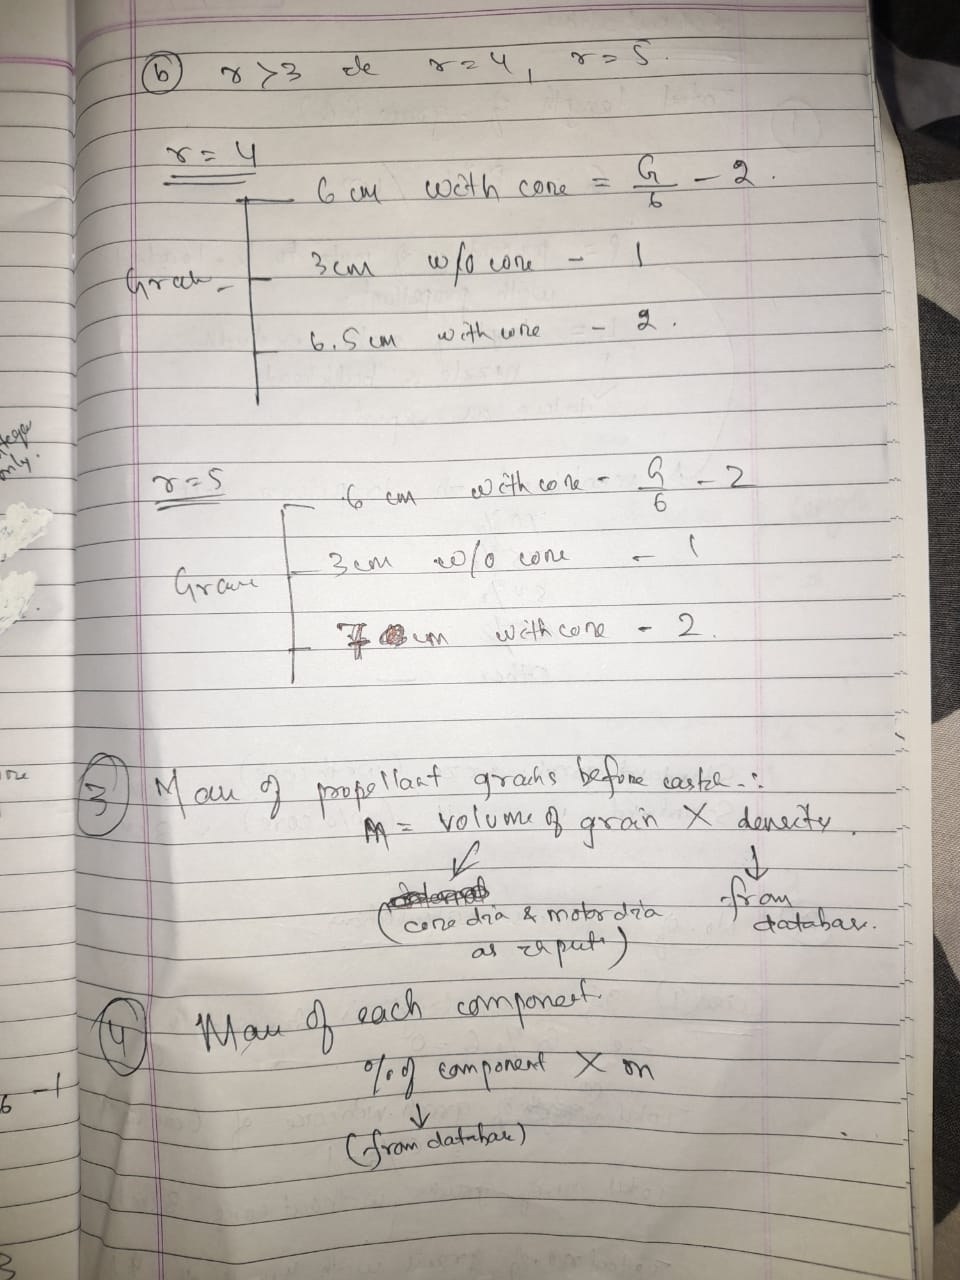 (b) r > 3 ie r = 4, r = 5.
r = 4
6 cm with core = G/6 - 2.
Grain -
3 cm w/o core - 1
6.5 cm with core - 2.
r = 5
6 cm with core - G/6 - 2
3 cm w/o core - 1
Grain
7 cm with core - 2.
(3) Mass of propellant grains before :
m = volume of grain X density.
(core dia & motor dia as inputs)
from database.
(4) Mass of each component.
% of component X m
(from database)
only.
6 - 1
3